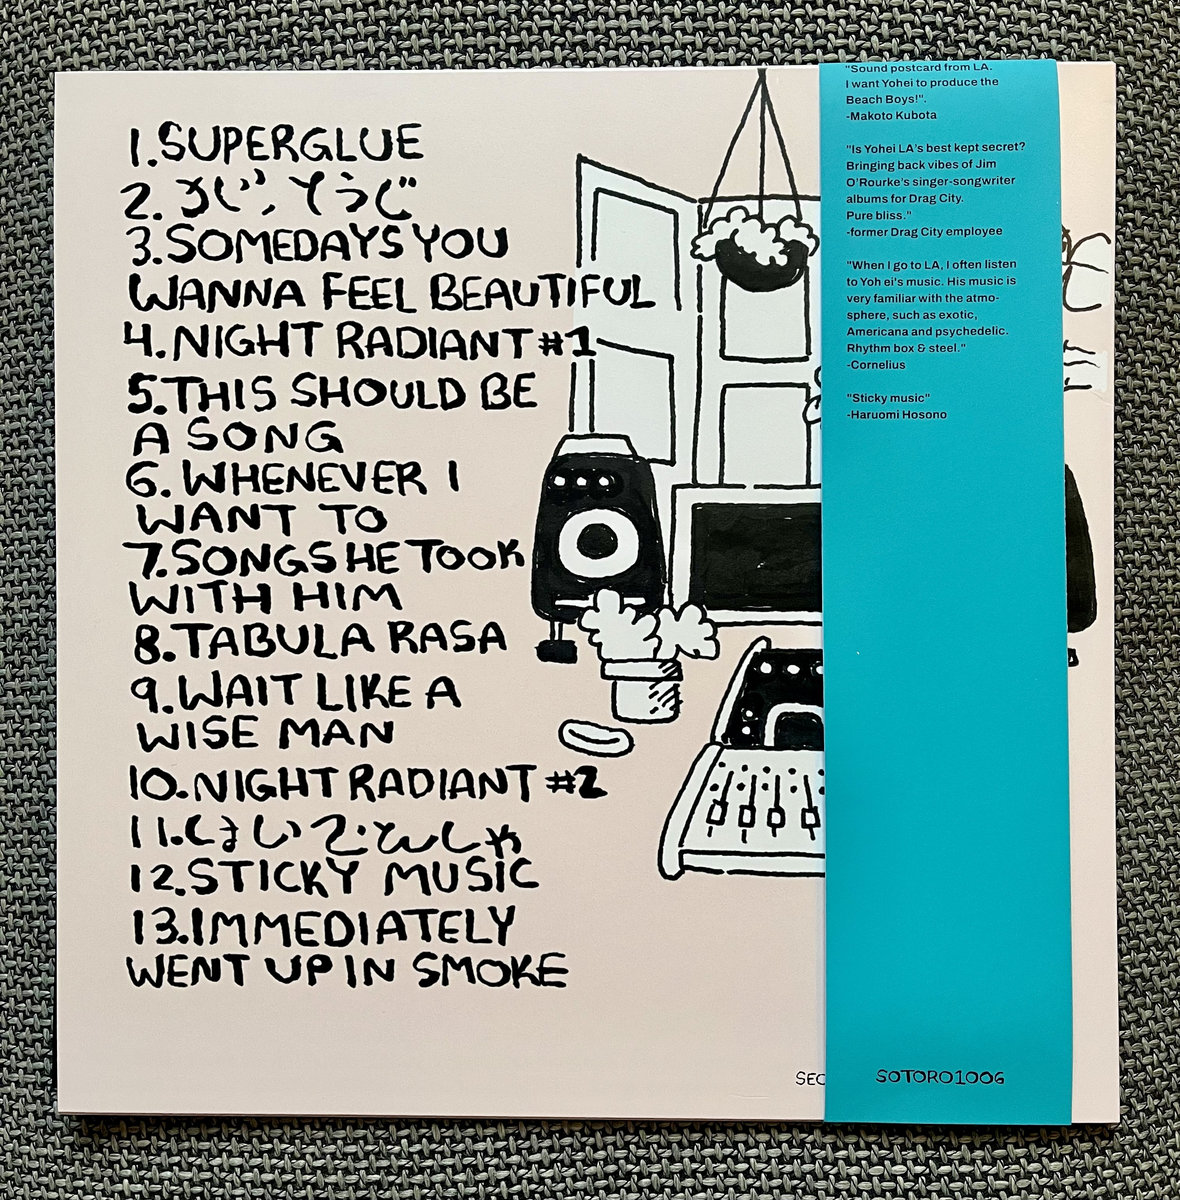 1.SUPERGLUE
2.
3.SOMEDAYS YOU
WANNA FEEL BEAUTIFUL
4.NIGHT RADIANT #1
5.THIS SHOULD BE
A SONG
6.WHENEVER I
WANT TO
7.SONGS HE TOOK
WITH HIM
8.TABULA RASA
9.WAIT LIKE A
WISE MAN
10.NIGHT RADIANT #2
11.
12.STICKY MUSIC
13.IMMEDIATELY
WENT UP IN SMOKE
SEC
"Sound postcard from LA.
I want Yohei to produce the
Beach Boys!".
-Makoto Kubota
"Is Yohei LA's best kept secret?
Bringing back vibes of Jim
O'Rourke's singer-songwriter
albums for Drag City.
Pure bliss."
-former Drag City employee
"When I go to LA, I often listen
to Yoh ei's music. His music is
very familiar with the atmo-
sphere, such as exotic,
Americana and psychedelic.
Rhythm box & steel."
-Cornelius
"Sticky music"
-Haruomi Hosono
SOTORO1006